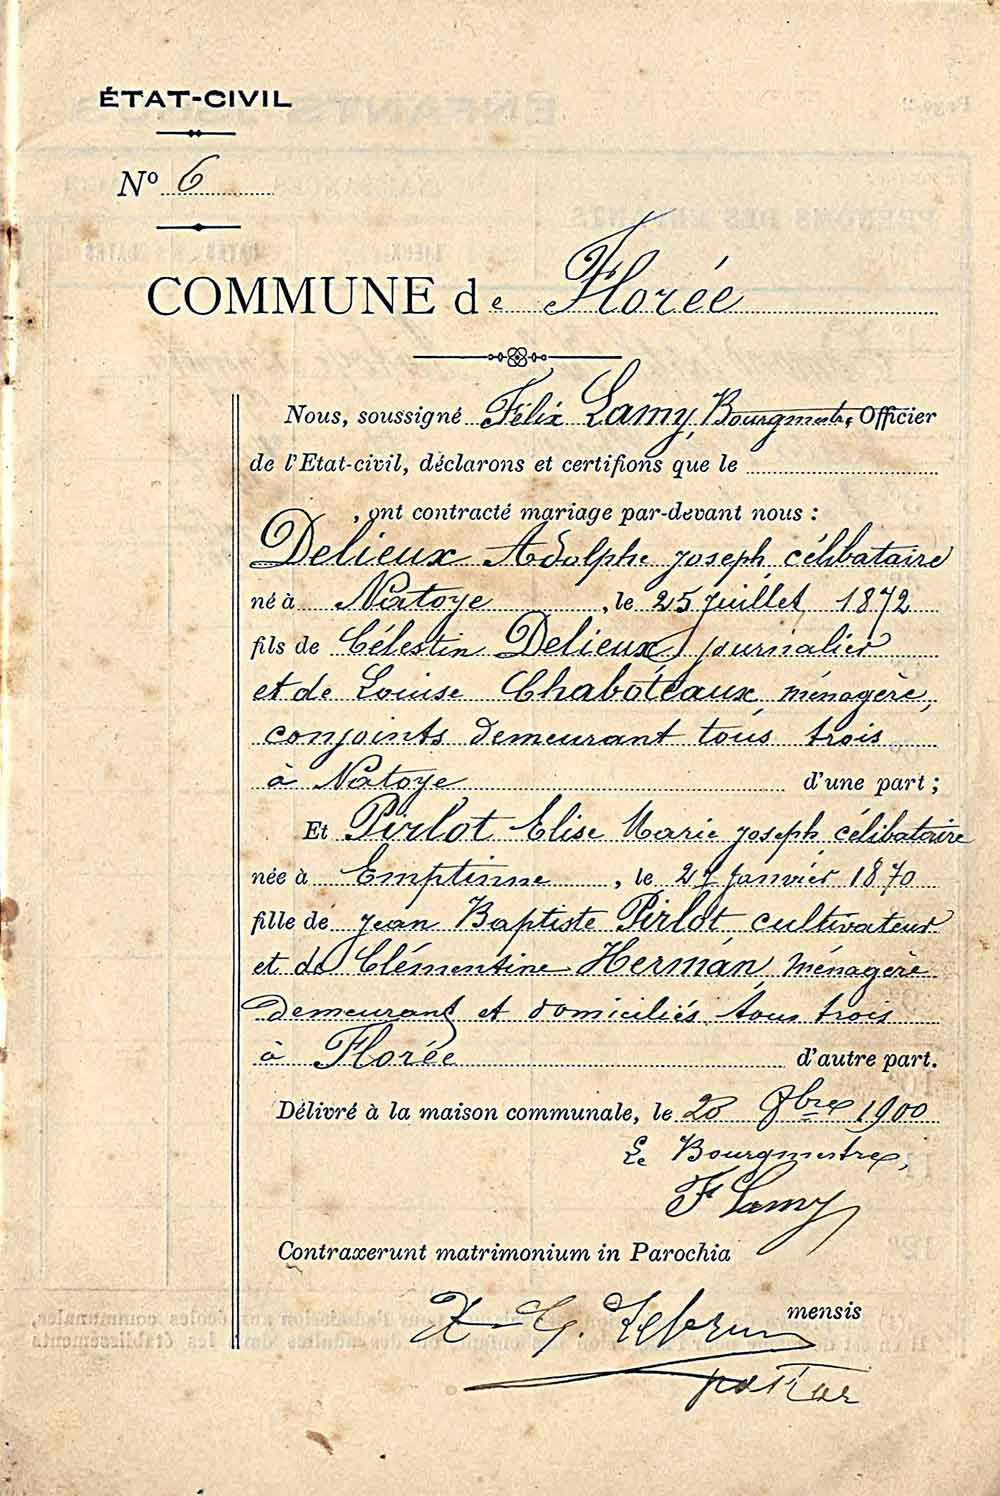 ÉTAT-CIVIL
N° 6
COMMUNE de Florée
Nous, soussigné Félix Lamy, Bourgmestre, Officier
de l'Etat-civil, déclarons et certifions que le
, ont contracté mariage par-devant nous :
Delieux Adolphe Joseph, célibataire
né à Natoye, le 25 Juillet 1872
fils de Célestin Delieux, journalier
et de Louise Chaboteaux, ménagère,
conjoints demeurant tous trois
à Natoye d'une part ;
Et Pirlot Elise Marie Joseph, célibataire
née à Emptinne, le 27 Janvier 1870
fille de Jean Baptiste Pirlot, cultivateur
et de Clémentine Herman, Ménagère
demeurant et domiciliés tous trois
à Florée d'autre part.
Délivré à la maison communale, le 20 9bre 1900
Le Bourgmestre,
F Lamy
Contraxerunt matrimonium in Parochia
mensis
G. Lebrun
pastor